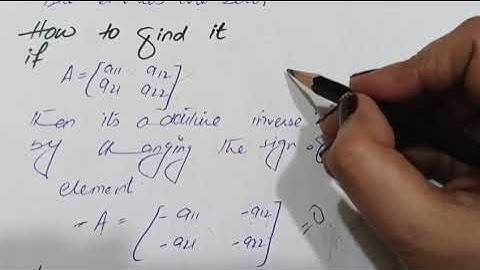 How to find it
if
A = [a11 a12
a21 a22]
then its additive inverse
by changing the sign of
element
-A = [-a11 -a12
-a21 -a22] = 0